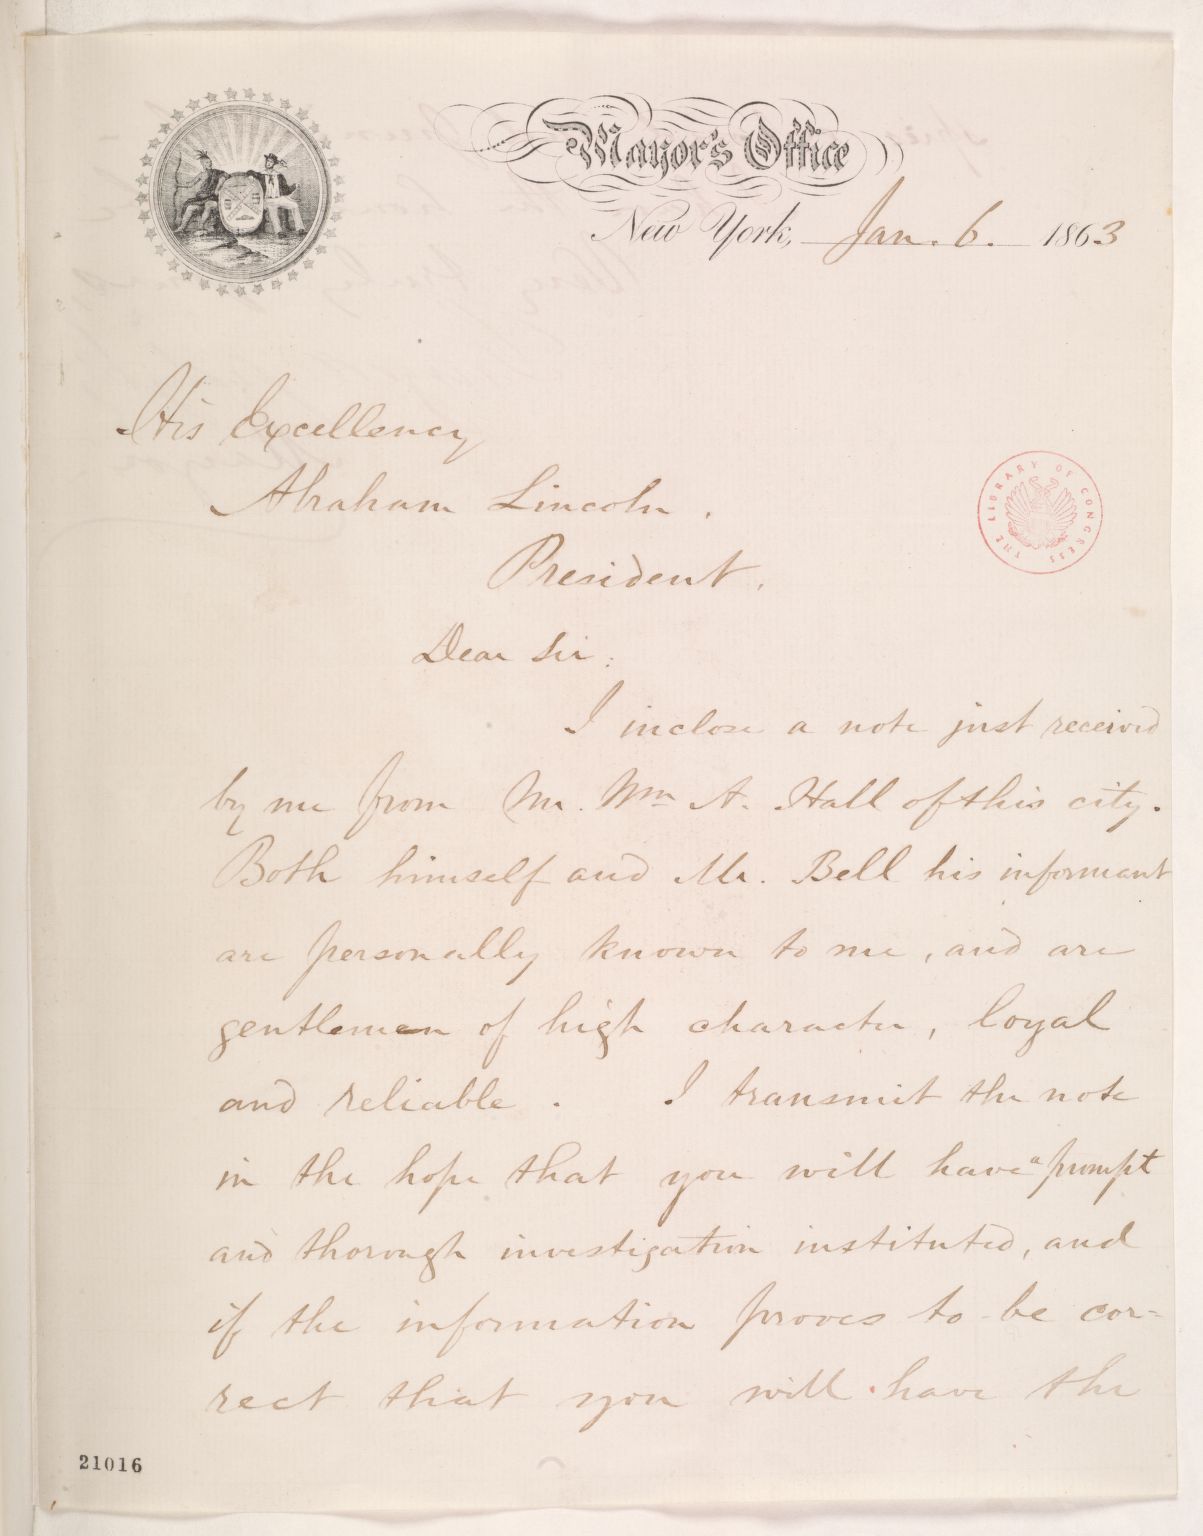 Mayor's Office
New York, Jan. 6. 1863
His Excellency
Abraham Lincoln.
President.
THE LIBRARY OF CONGRESS
Dear Sir:
I inclose a note just received
by me from Mr. Wm A. Hall of this city.
Both himself and Mr. Bell his informant
are personally known to me, and are
gentlemen of high character, loyal
and reliable. I transmit the note
in the hope that you will have a prompt
and thorough investigation instituted, and
if the information proves to be cor=
rect that you will have the
21016